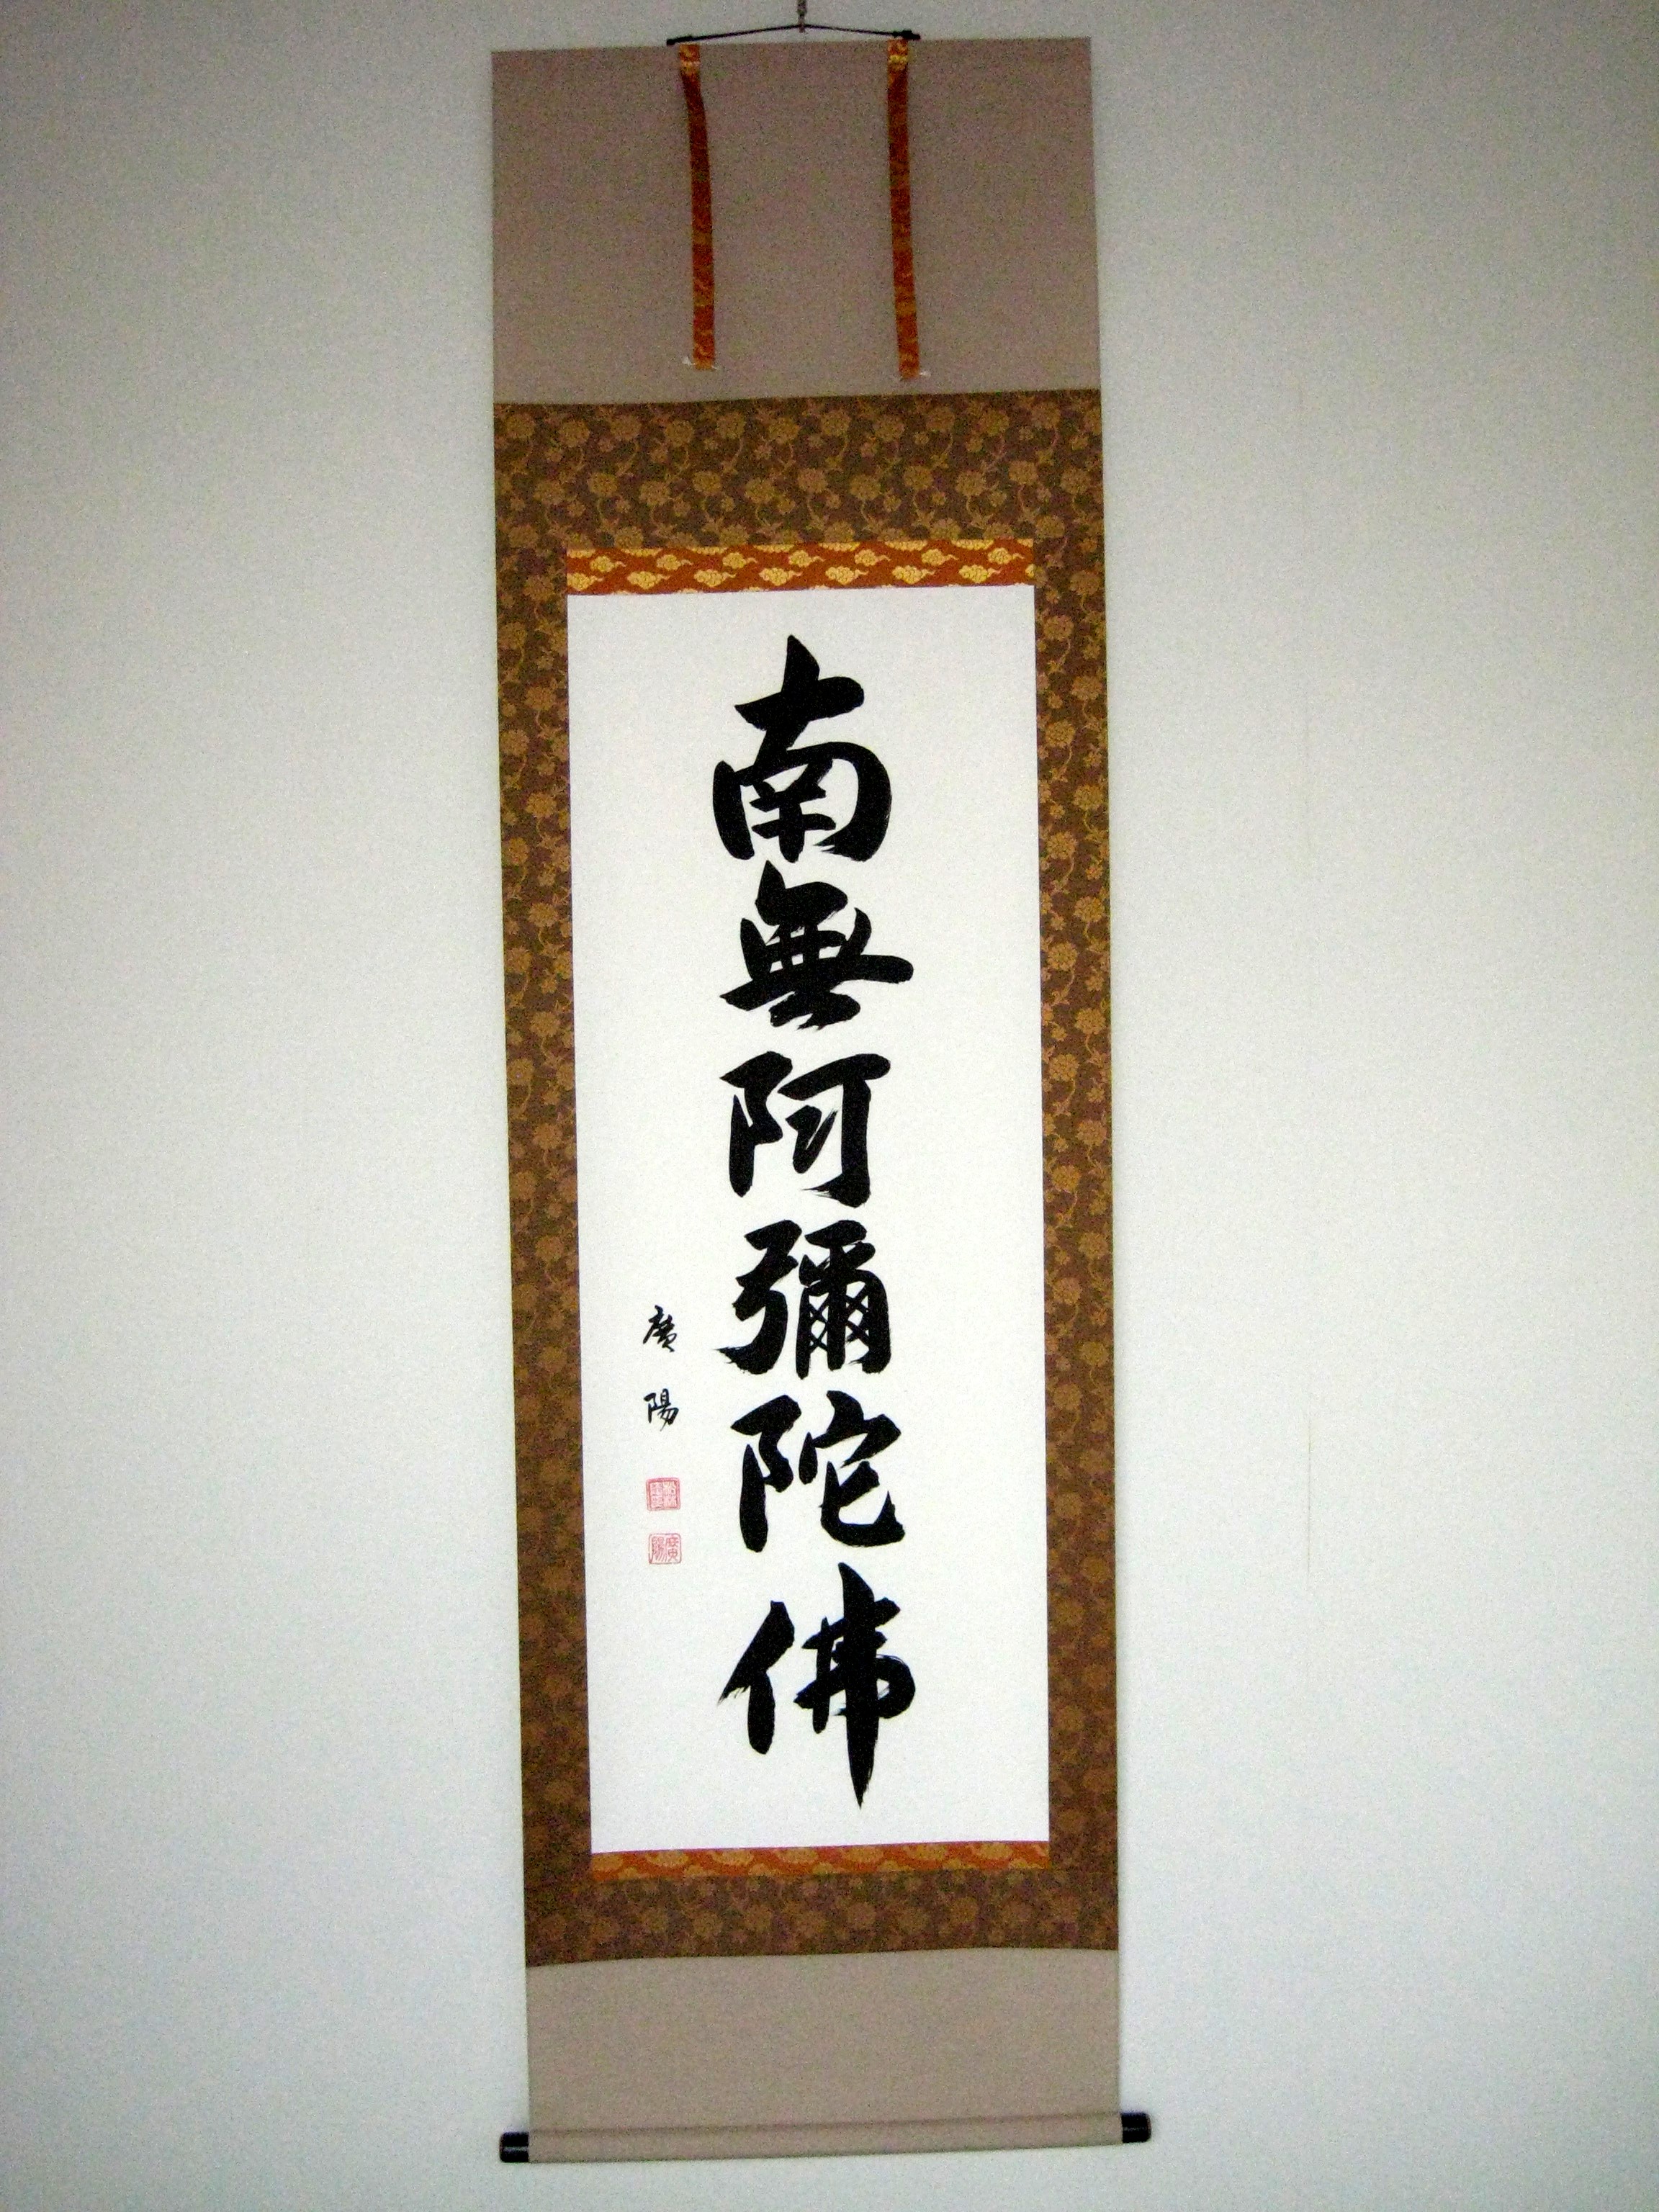 南無阿彌陀佛
廣陽
廣陽